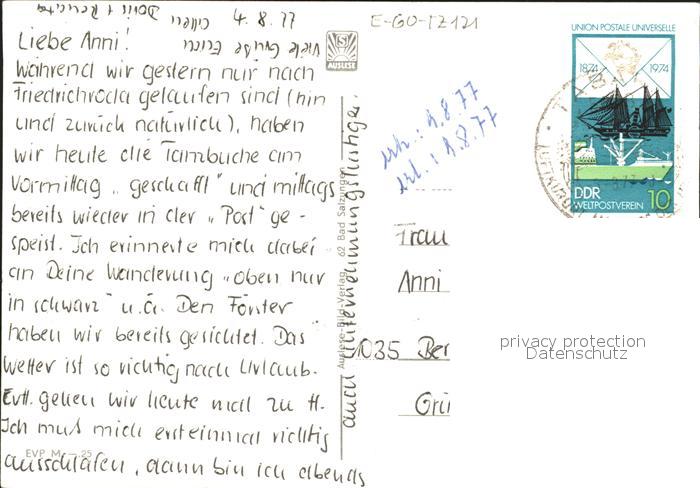 Liebe Anni!
Während wir gestern nur nach
Friedrichroda gelaufen sind (hin
und zurück natürlich), haben
wir heute die Tambuche am
Vormittag „geschafft" und mittags
bereits wieder in der „Post" ge-
speist. Ich erinnerte mich dabei
an Deine Wanderung „oben nur
in schwarz" u.ä. Den Förster
haben wir bereits gesichtet. Das
Wetter ist so richtig nach Urlaub.
Evtl. gehen wir heute mal zu H.
Ich muß mich ersteinmal richtig
ausschlafen, dann bin ich abends
auch unternehmungslustiger.
Viele Grüße
22.8.77
EVP M -.25
AUSLESE
Auslese-Bild-Verlag 62 Bad Salzungen
E-GO-TZ121
erh.: 1.8.77
erl.: 1.8.77
UNION POSTALE UNIVERSELLE
1874 1974
DDR
WELTPOSTVEREIN 10
Frau
Anni
1035 Ber
Grü
privacy protection
Datenschutz